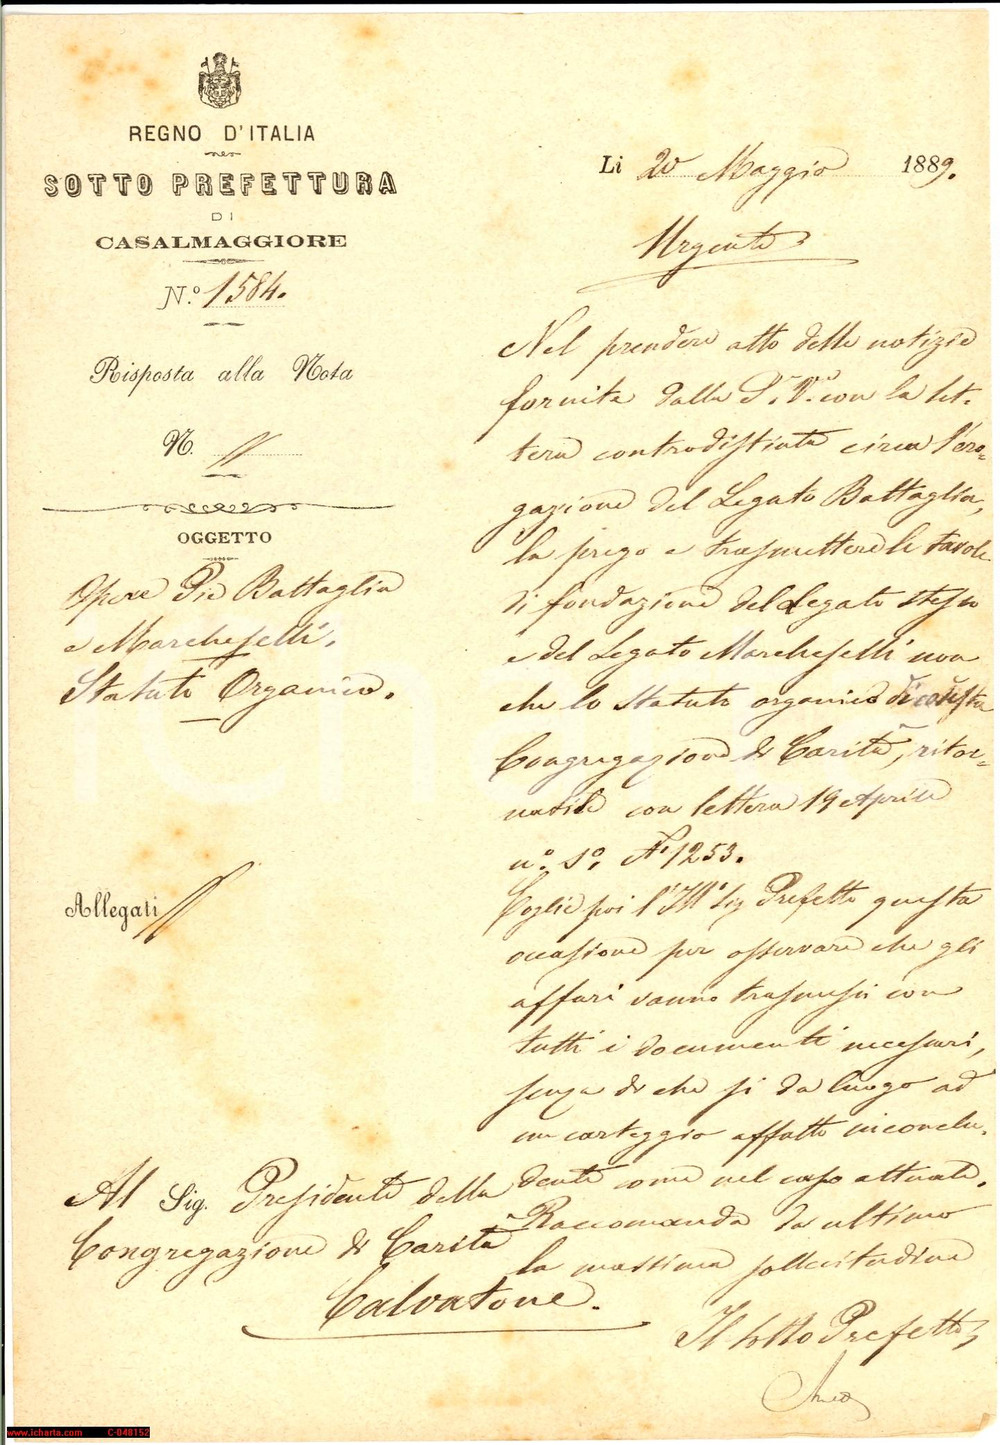 REGNO D'ITALIA
SOTTO PREFETTURA
DI
CASALMAGGIORE
N.º 1584.
Risposta alla Nota
N.
OGGETTO
Opere Pie Battaglia
e Marcheselli.
Statuto Organico.
Allegati
Li 20 Maggio 1889.
Urgente
Nel prendere atto delle notizie
fornite dalla S.ª V.ª con la let-
tera controdistinta circa l'ero-
gazione del Legato Battaglia,
la prego a trasmettere le tavole
di fondazione del Legato stesso
e del Legato Marcheselli non
che lo Statuto organico di codesta
Congregazione di Carità, ritor-
natile con lettera 19 Aprile
n.º s.º Nº 1253.
Coglie poi l'Ill.º Sig Prefetto questa
occasione per osservare che gli
affari vanno trasmessi con
tutti i documenti necessari,
senza di che si da luogo ad
un carteggio affatto inconclu-
dente come nel caso attuale.
Raccomanda da ultimo
la massima sollecitudine
Il Sotto Prefetto
Al Sig. Presidente della
Congregazione di Carità
Calvatone.
www.icharta.com C-040152